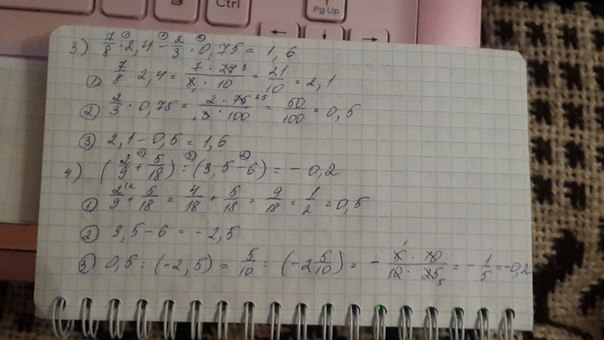 Ctrl
Pg Up
3) 7/8 · 2,4 - 2/3 · 0,75 = 1,6
① 7/8 · 2,4 = 7 · 24 3 / 8 1 · 10 = 21/10 = 2,1
② 2/3 · 0,75 = 2 · 75 25 / 3 · 100 = 50/100 = 0,5
③ 2,1 - 0,5 = 1,6
4) (2/9 + 5/18) : (3,5 - 6) = - 0,2
① 2/9 + 5/18 = 4/18 + 5/18 = 9/18 = 1/2 = 0,5
② 3,5 - 6 = - 2,5
③ 0,5 : (-2,5) = 5/10 : (-2 5/10) = - 5 1 · 10 / 10 · 25 5 = - 1/5 = -0,2